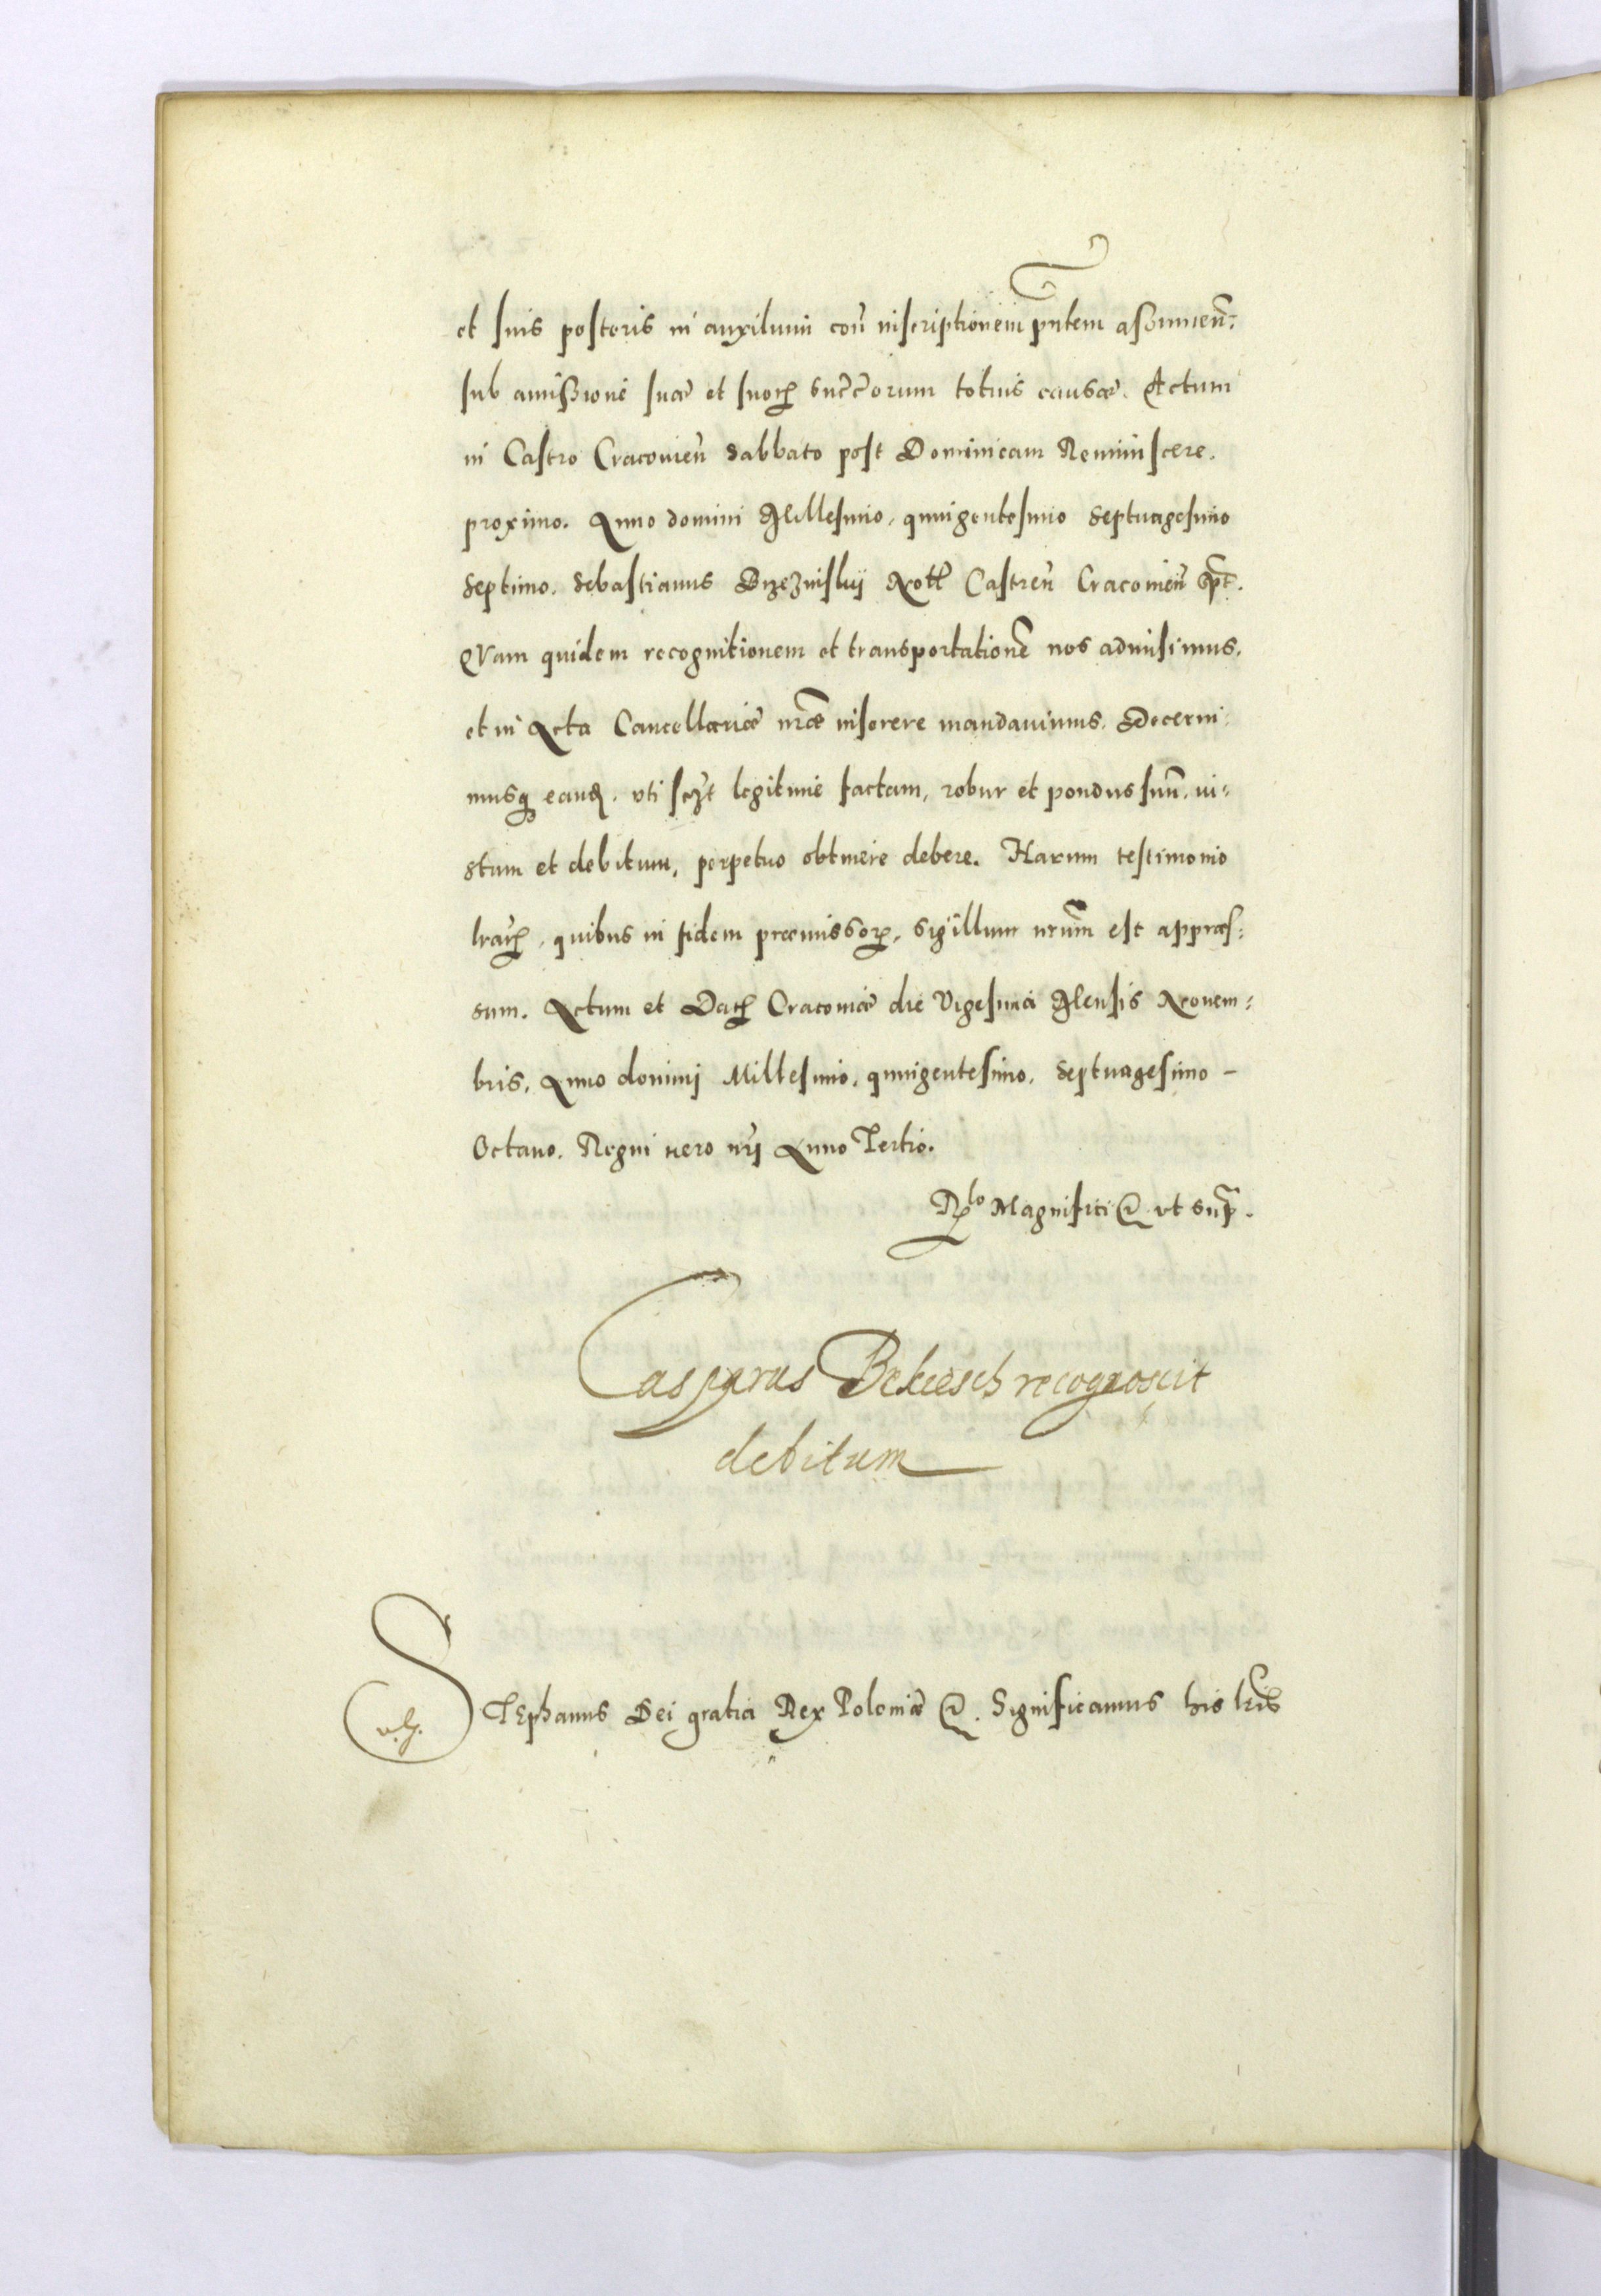 et suis posteris in auxilium con̄ inscriptionem pn̄tem assumen̄:
sub amissione suæ et suoꝝ succ̄orum totius causæ. Actum
in Castro Cracovien̄ Sabbato post Dominicam Reminiscere.
proximo. Anno domini Millesimo, quingentesimo Septuagesimo
Septimo. Sebastianus Brzezinskij Not̄ Castren̄ Cracovien̄ sp̄t.
QVam quidem recognitionem et transportationē nos admisimus,
et in Acta Cancellariæ nr̄æ inserere mandavimus. Decerni
musq̃ eand̃. uti scz̄t legitime factam, robur et pondus suū. iu-
stum et debitum, perpetuo obtinere debere. Harum testimonio
lr̄aꝝ, quibus in fidem præmissoꝝ, Sigillum nr̄um est appræs:
sum. Actum et Datꝝ Cracoviæ die Vigesima Mensis Novem:
bris, Anno dominj Millesimo, quingentesimo, Septuagesimo -
Octavo. Regni vero nr̄j Anno Tertio.
Rlo Magnifici @ ut supr̄.
Casparus Bekiesch recognoscit
debitum
STEphanus Dei gratia Rex Poloniæ @. Significamus his lr̄is